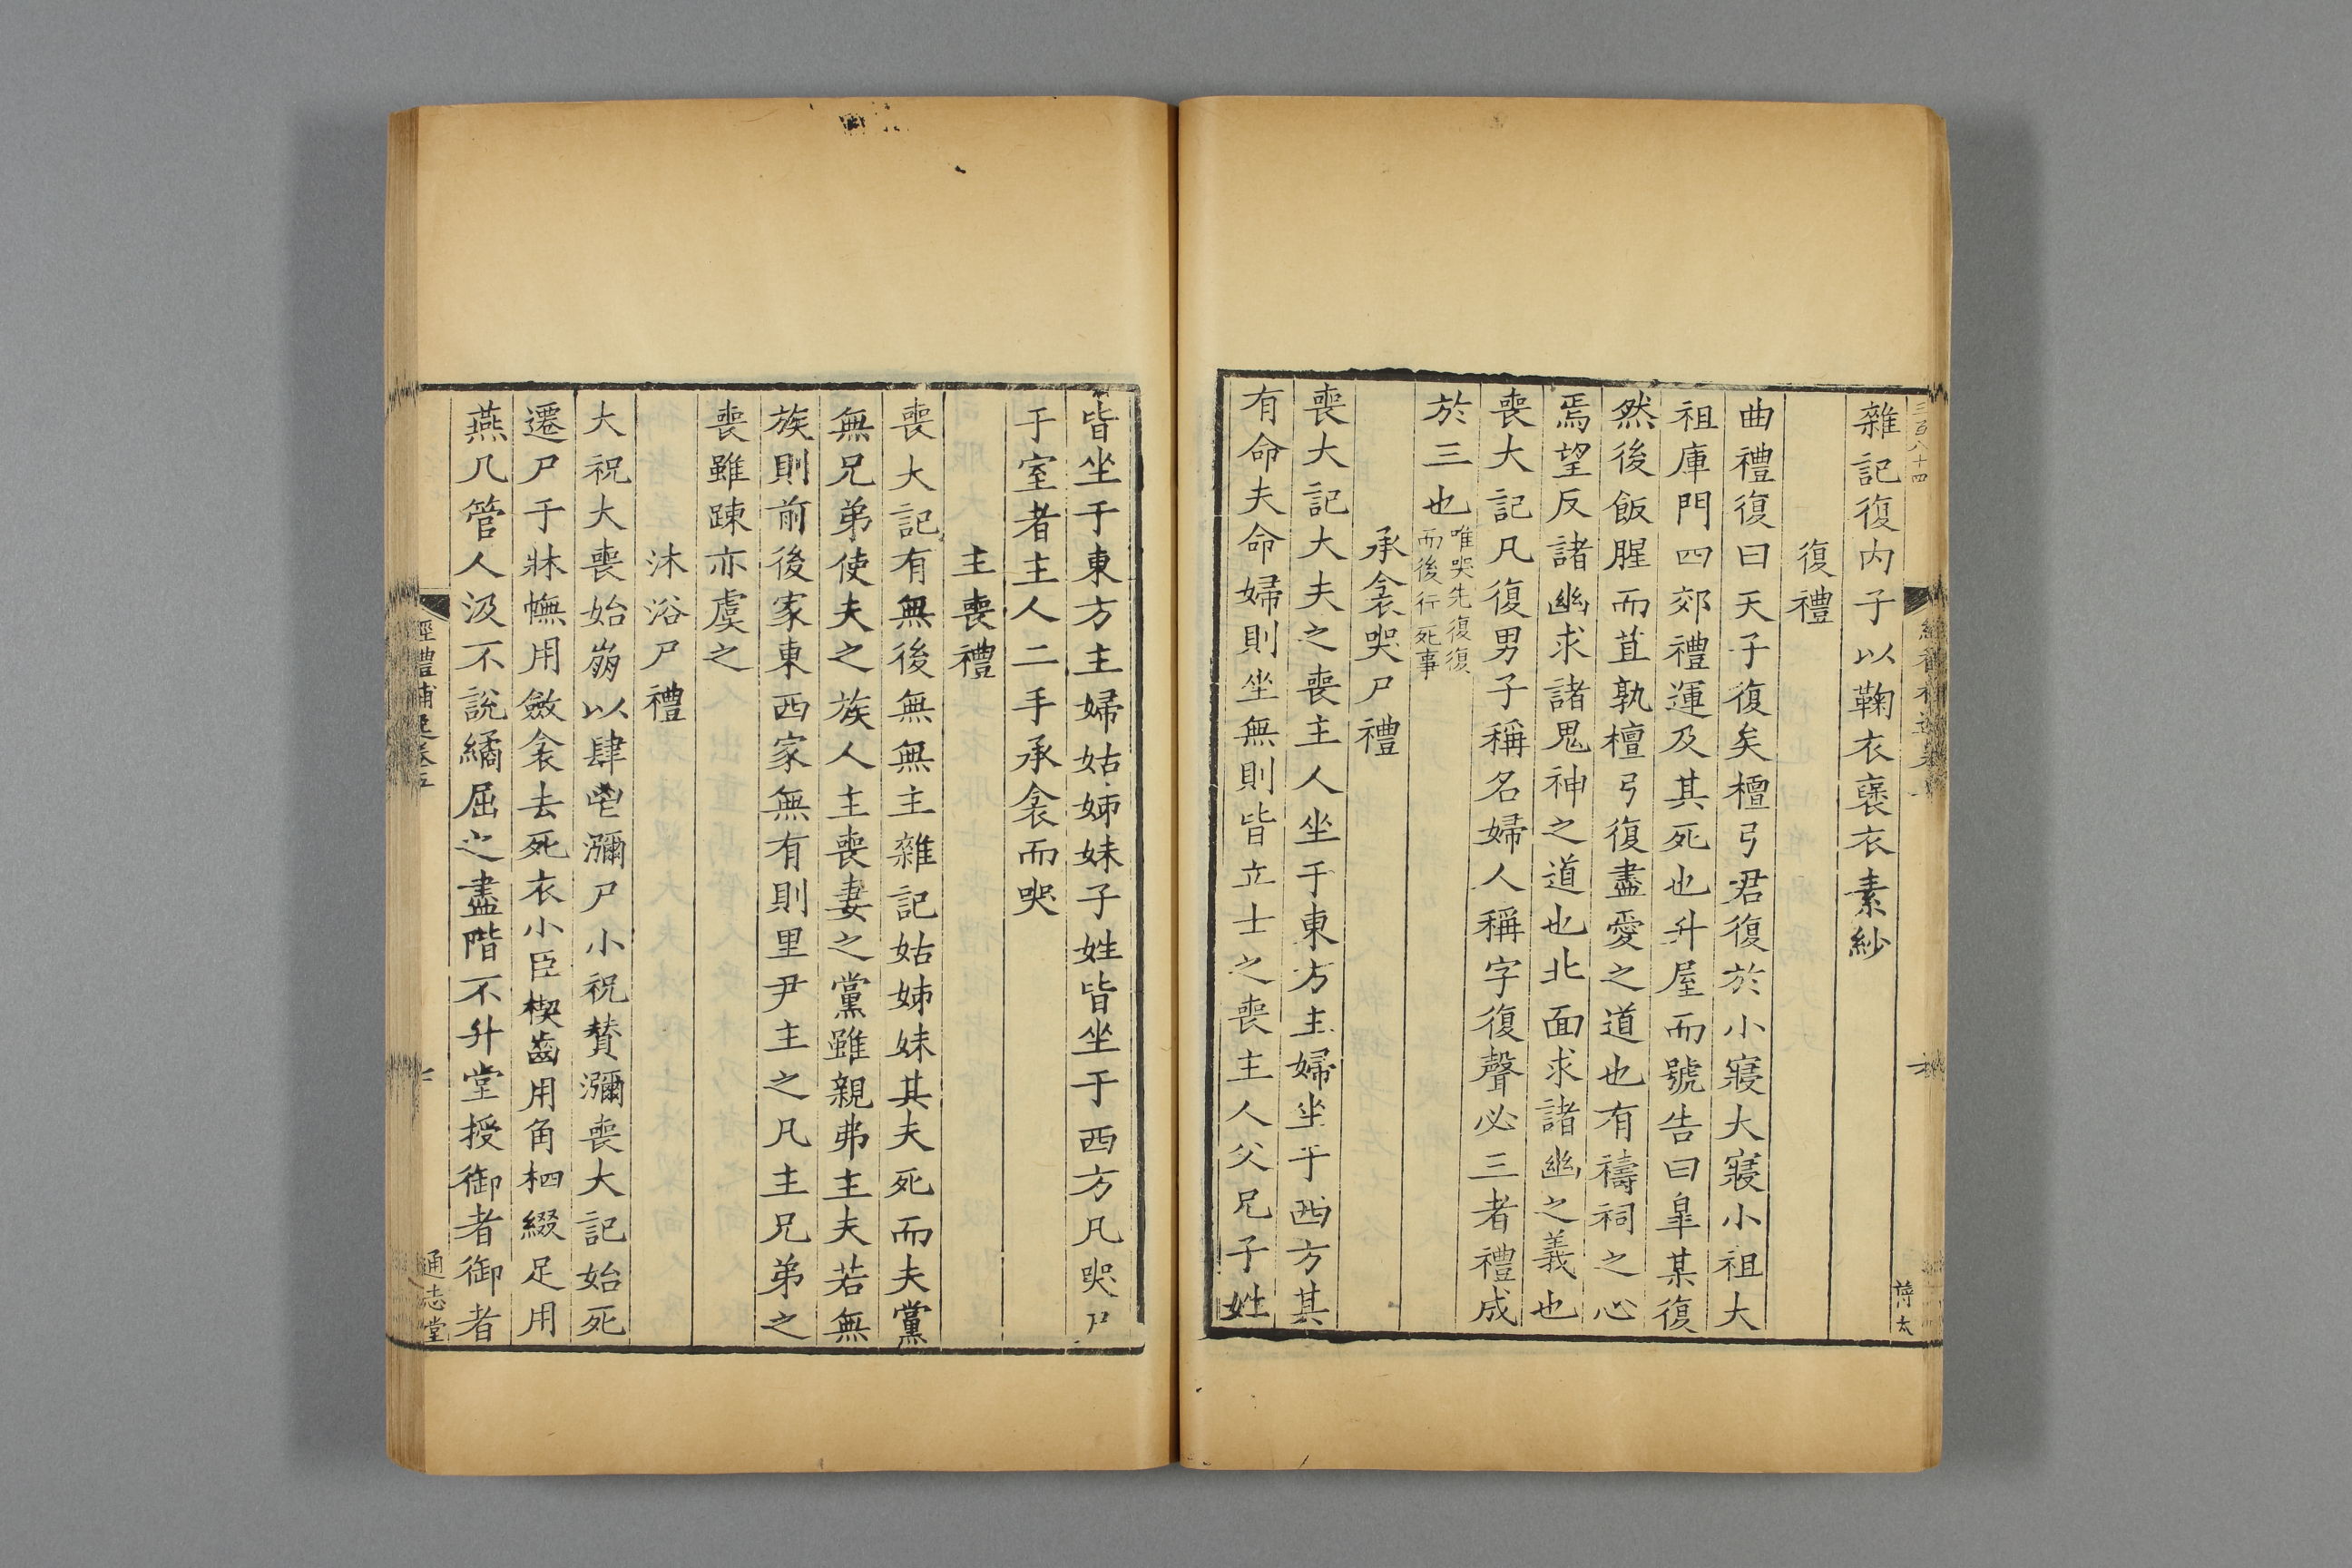 三百八十四
雜記復内子以鞠衣襃衣素紗
復禮
曲禮復曰天子復矣檀弓君復於小寢大寢小祖大
祖庫門四郊禮運及其死也升屋而號告曰皐某復
然後飯腥而苴孰檀弓復盡愛之道也有禱祠之心
焉望反諸幽求諸鬼神之道也北面求諸幽之義也
喪大記凡復男子稱名婦人稱字復聲必三者禮成
於三也唯哭先復復
而後行死事
承衾哭尸禮
喪大記大夫之喪主人坐于東方主婦坐于西方其
有命夫命婦則坐無則皆立士之喪主人父兄子姓
皆坐于東方主婦姑姊妹子姓皆坐于西方凡哭尸
于室者主人二手承衾而哭
主喪禮
喪大記有無後無無主雜記姑姊妹其夫死而夫黨
無兄弟使夫之族人主喪妻之黨雖親弗主夫若無
族則前後家東西家無有則里尹主之凡主兄弟之
喪雖踈亦虞之
沐浴尸禮
大祝大喪始崩以肆鬯瀰尸小祝賛瀰喪大記始死
遷尸于牀幠用斂衾去死衣小臣楔齒用角柶綴足用
燕几管人汲不說繘屈之盡階不升堂授御者御者
經禮補逸卷五
通志堂